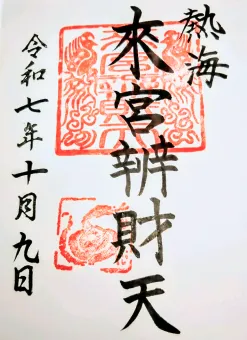 熱海
來宮辨財天
令和七年十月九日